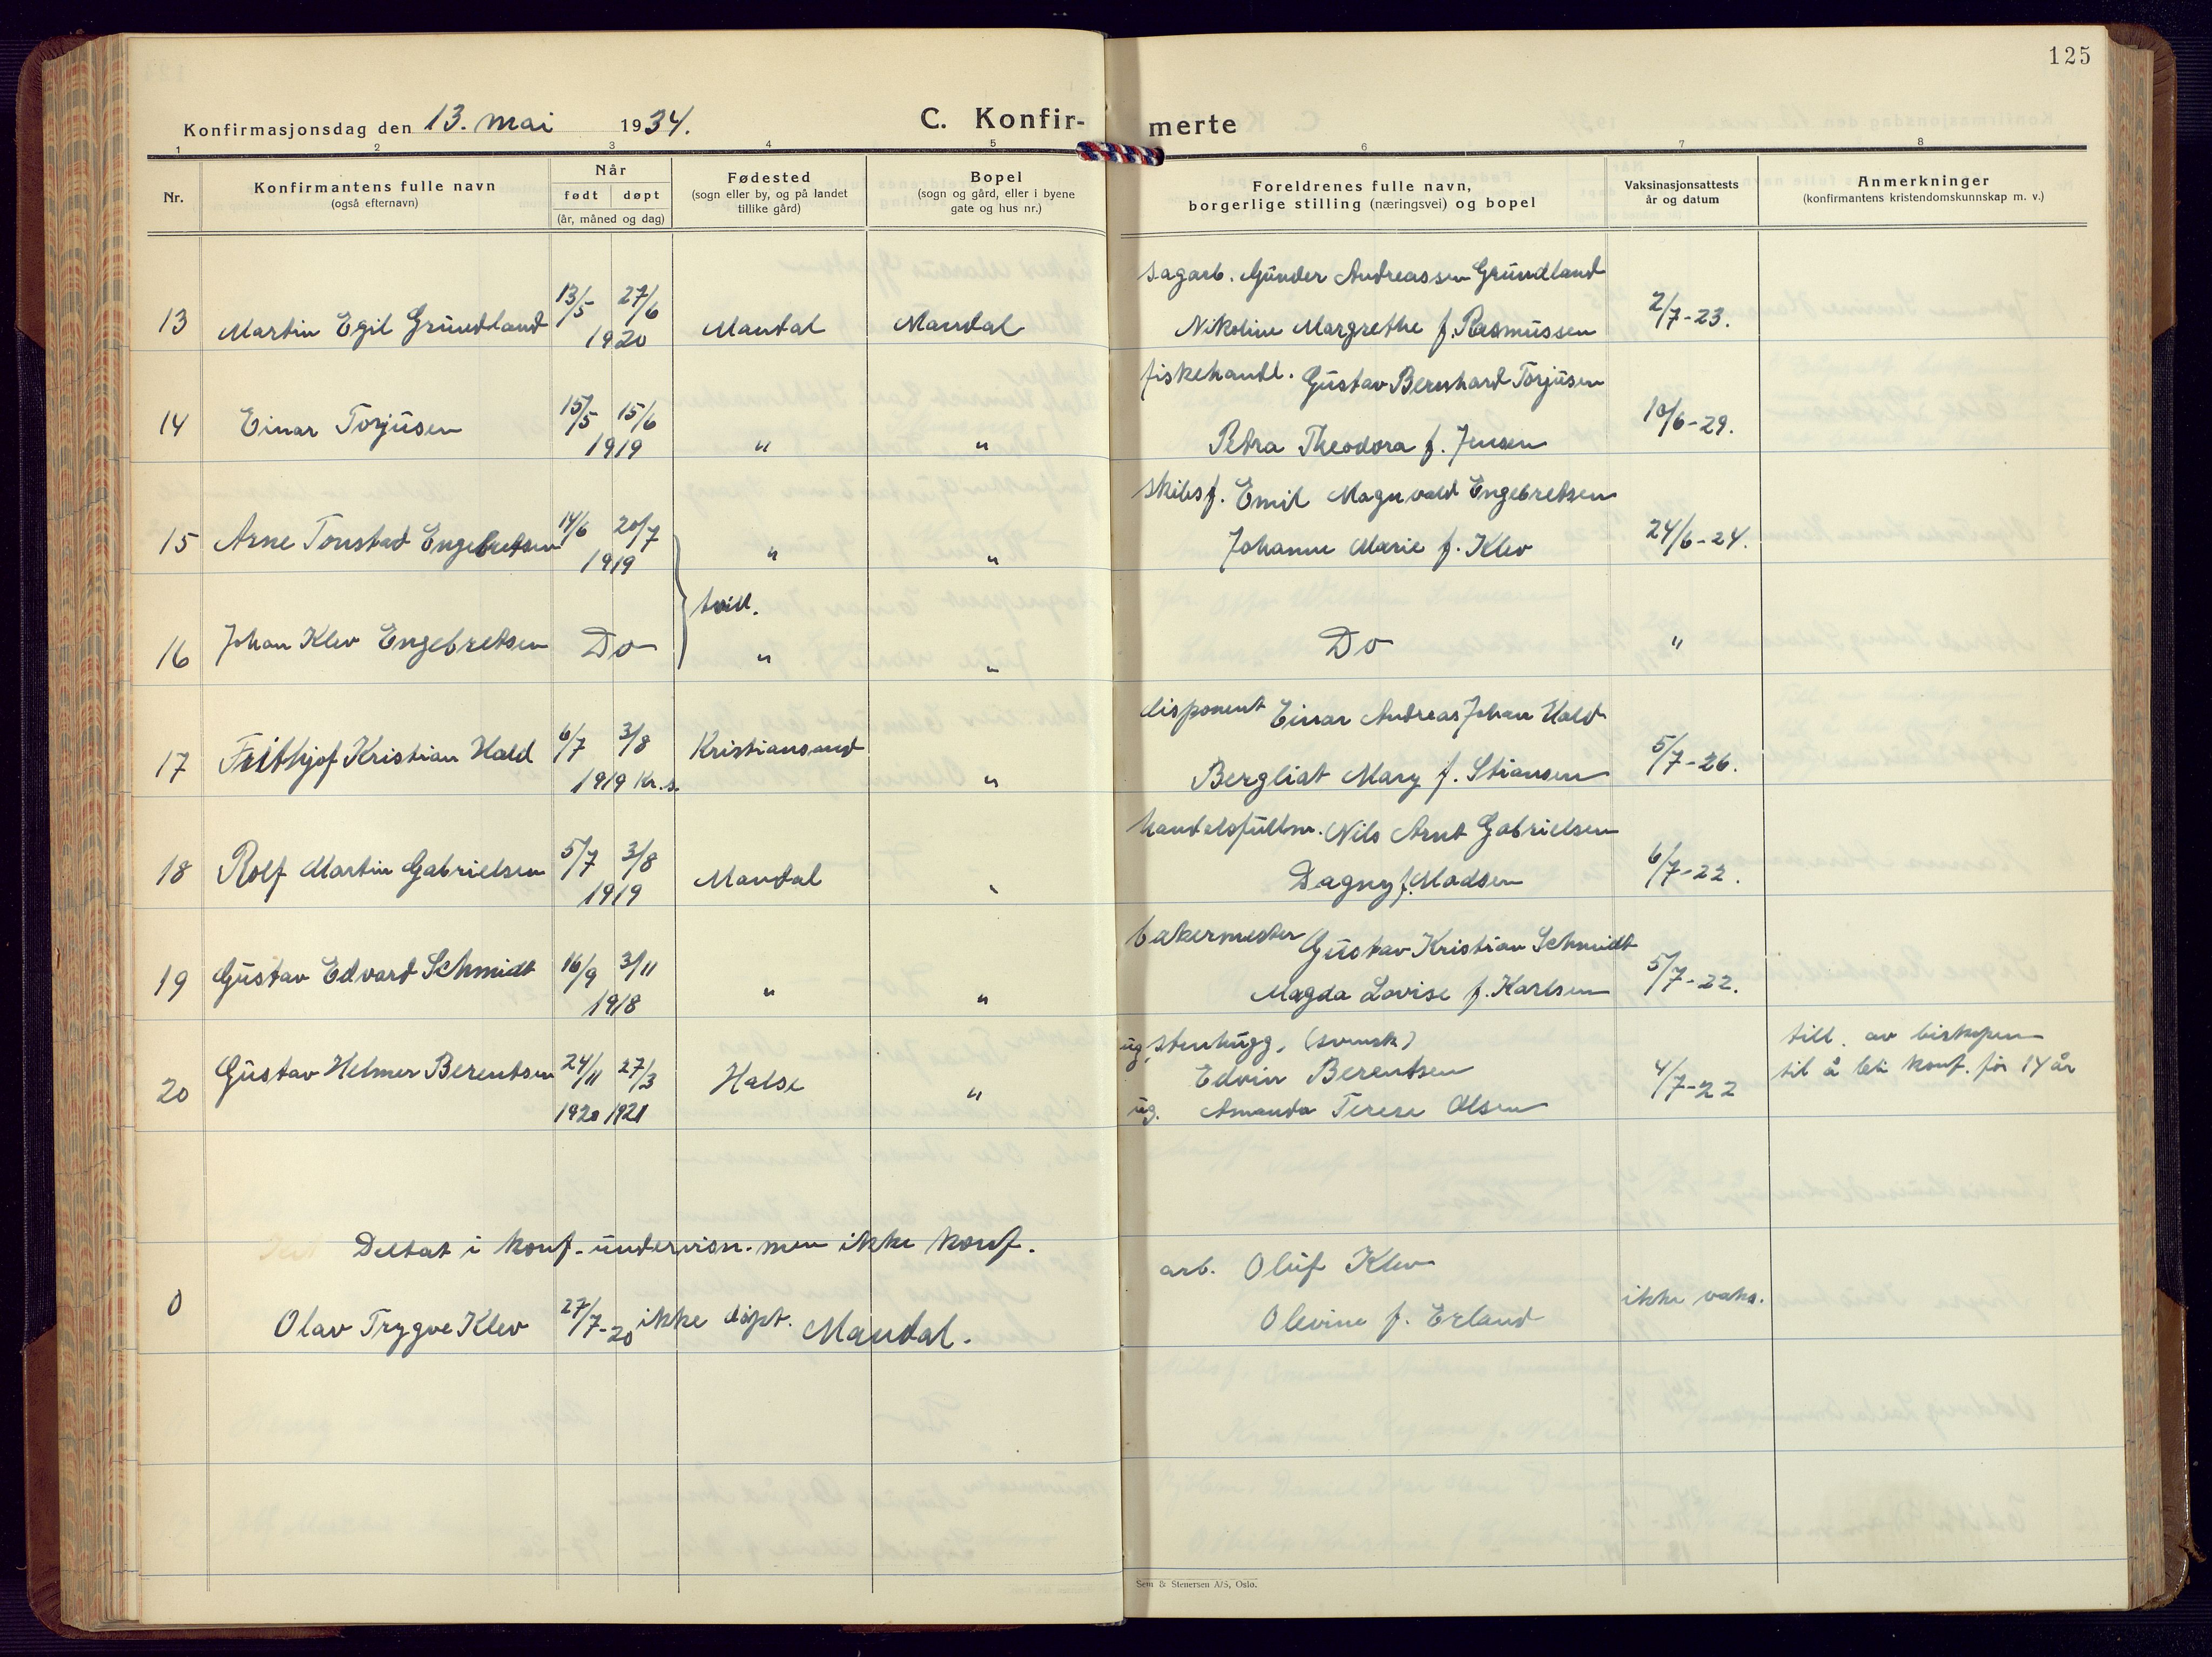 125
Konfirmasjonsdag den 13. mai 1934.
C. Konfir-merte
1 2 3 4 5 6 7 8
Nr.
Konfirmantens fulle navn
(også efternavn)
Når
født døpt
(år, måned og dag)
Fødested
(sogn eller by, og på landet
tillike gård)
Bopel
(sogn og gård, eller i byene
gate og hus nr.)
Foreldrenes fulle navn,
borgerlige stilling (næringsvei) og bopel
Vaksinasjonsattests
år og datum
Anmerkninger
(konfirmantens kristendomskunnskap m. v.)
sagarb. Gunder Andreassen Grundland
13 Martin Egil Grundland 13/5 27/6 1920 Mandal Mandal Nikoline Margrethe f. Rasmussen 2/7-23.
fiskehandl. Gustav Bernhard Torjusen
14 Einar Torjusen 15/5 15/6 1919 " " Petra Theodora f. Jensen 10/6-29.
skibsf. Emil Magnvald Engebretsen
15 Arne Tonstad Engebretsen 14/6 20/7 1919 " " Johanne Marie f. Klev 24/6-24.
tvill.
16 Johan Klev Engebretsen Do " " Do "
disponent Einar Andreas Johan Hald
17 Frithjof Kristian Hald 6/7 3/8 1919 Kr.s. Kristiansund " Bergliot Mary f. Stiansen 5/7-26.
handelsfullm. Nils Arnt Gabrielsen
18 Rolf Martin Gabrielsen 5/7 3/8 1919 Mandal " Dagny f. Madsen 6/7-22.
bakermester Gustav Kristian Schmidt
19 Gustav Edvard Schmidt 16/9 3/11 1918 " " Magda Lovise f. Karlsen 5/7-22.
ug. stenhugg. (svensk)
Edvin Berentsen
20 Gustav Helmer Berentsen 24/11 1920 27/3 1921 Halse " ug. Amanda Terese Olsen 4/7-22
till. av biskopen
til å bli konf. før 14 år
Deltat i konf.-undervisn. men ikke konf.
arb. Oluf Klev
0 Olav Trygve Klev 27/7-20 ikke døpt. Mandal. Olevine f. Erland ikke vaks.
Sem & Stenersen A/S, Oslo.